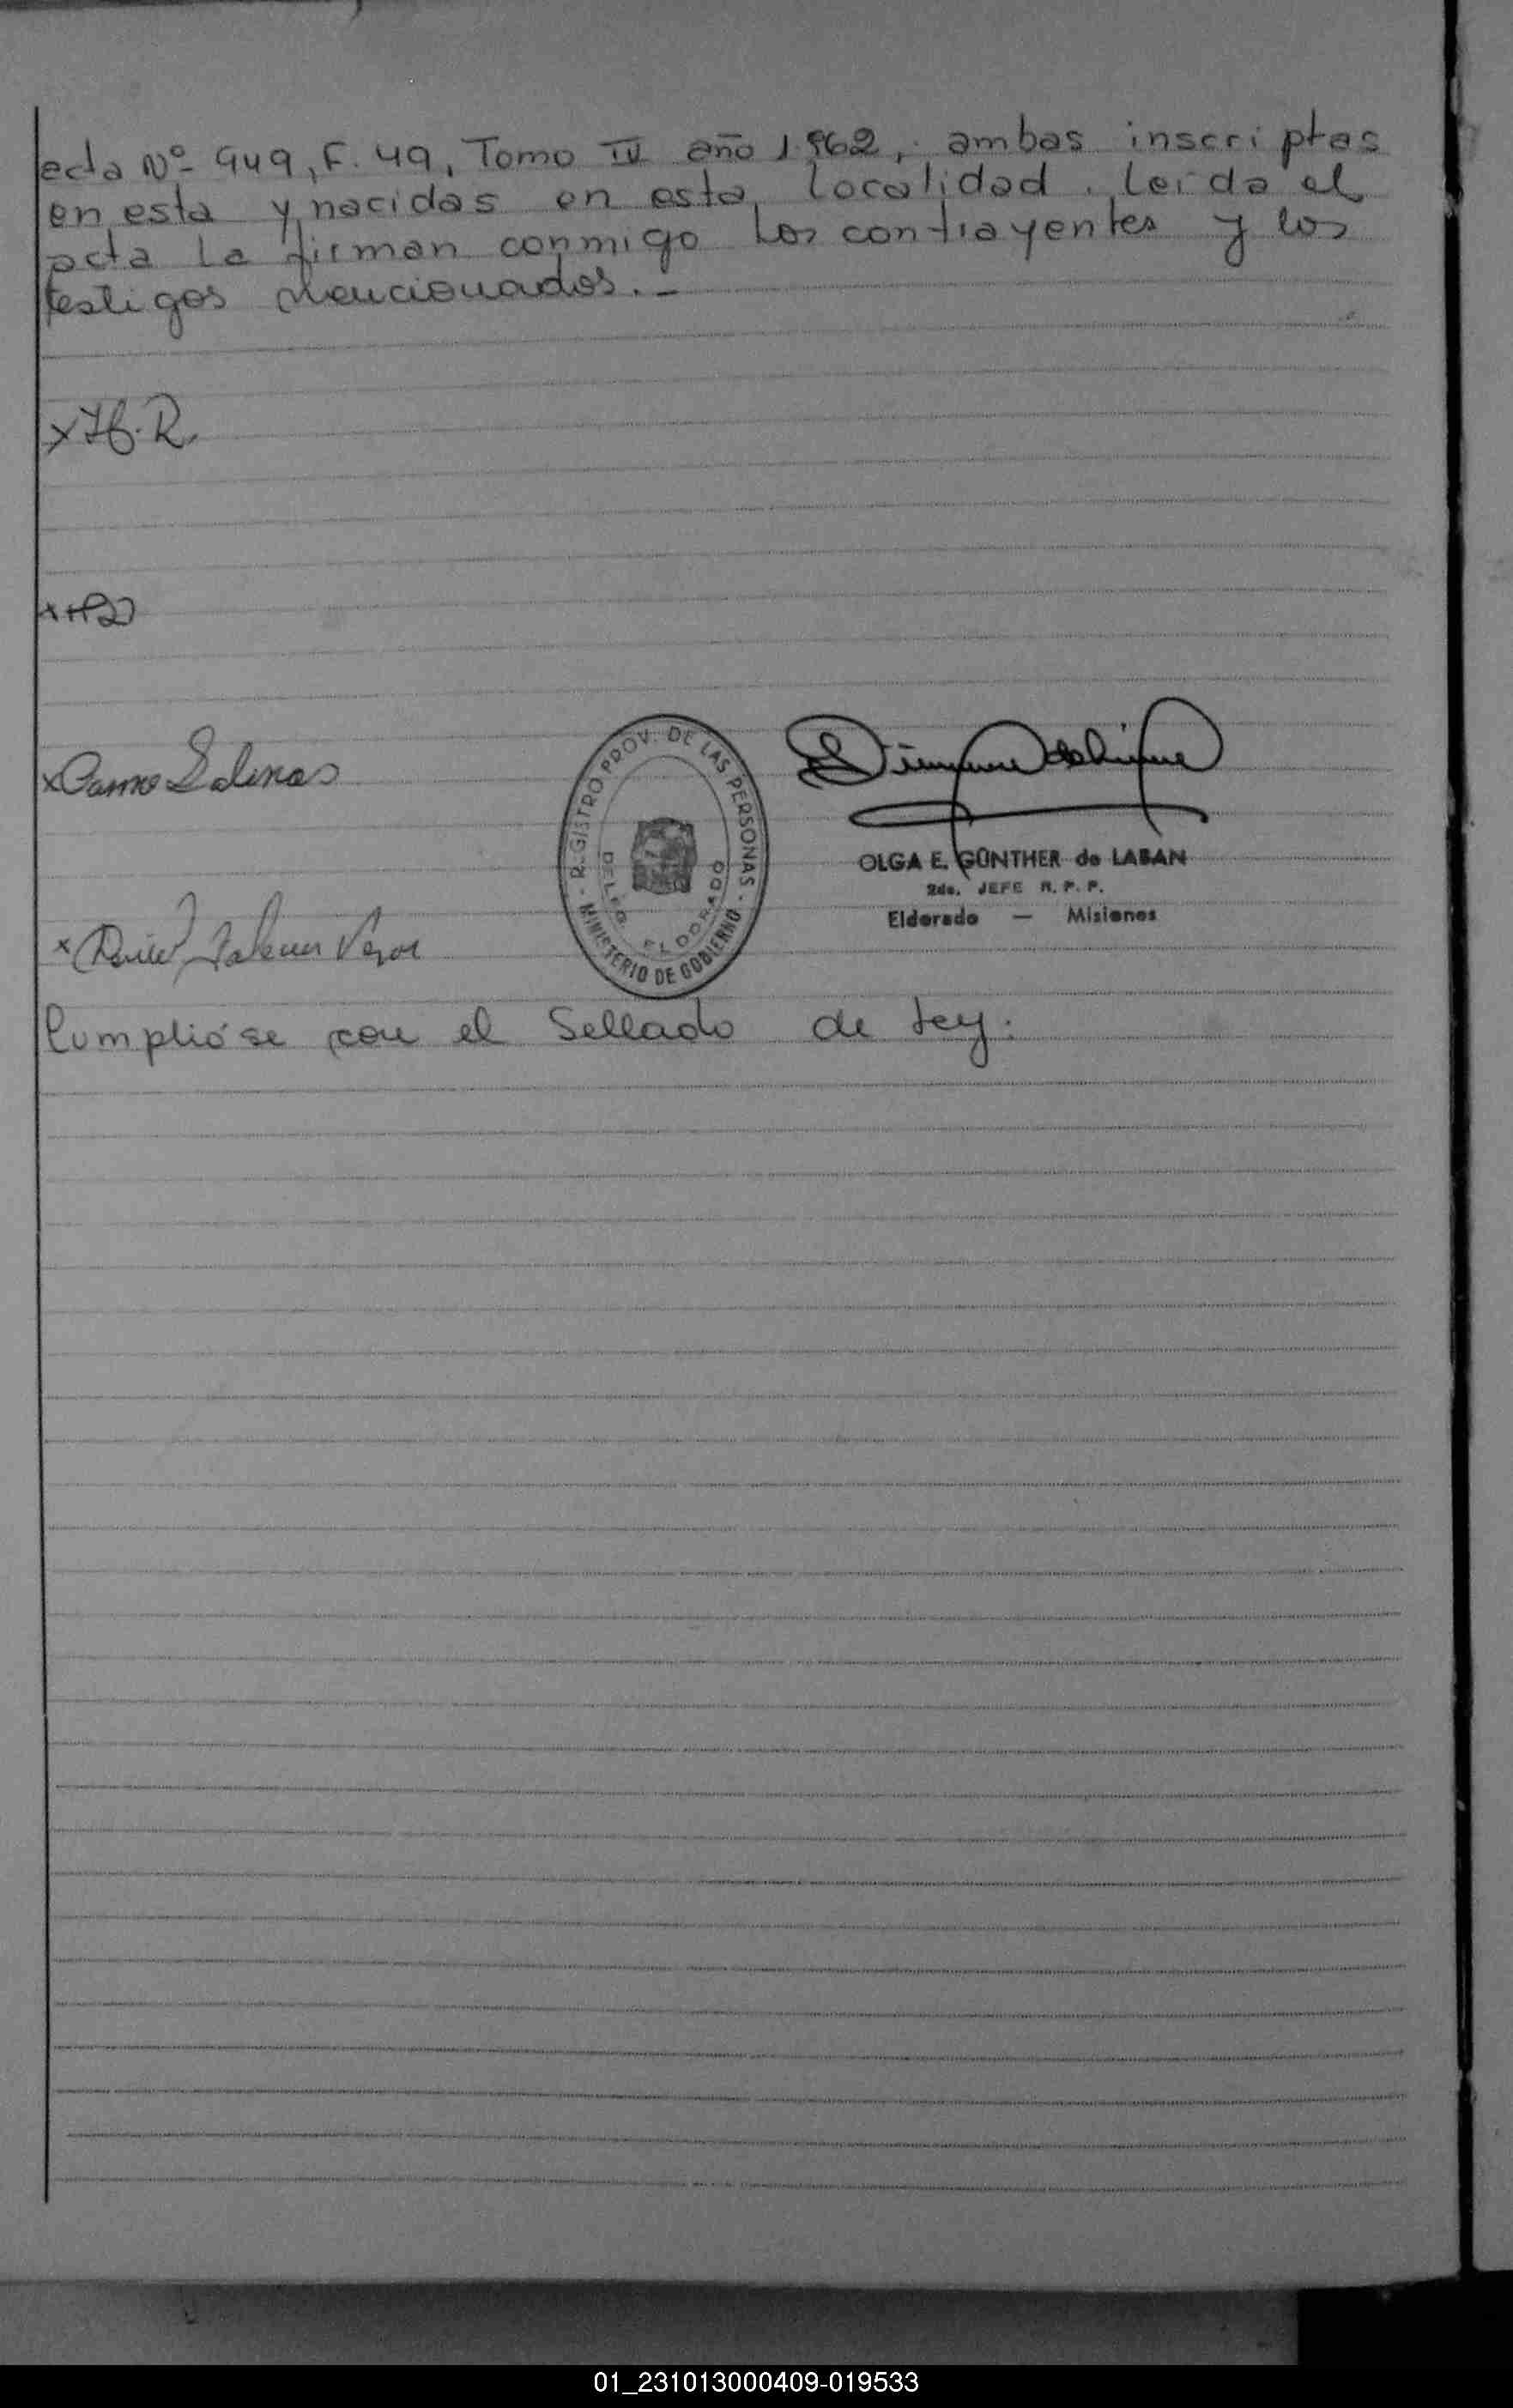 acta Nº 949, F. 49, Tomo IV año 1.962, ambas inscriptas
en esta y nacidas en esta localidad. Leida el
acta la firman conmigo los contrayentes y los
testigos mencionados.-
x H. R.
x
x Salinas
REGISTRO PROV. DE LAS PERSONAS - MINISTERIO DE GOBIERNO -
DELEG. ELDORADO
OLGA E. GÜNTHER de LABAN
2do. JEFE R. P. P.
Eldorado — Misiones
x
Cumplióse con el Sellado de Ley.
01_231013000409-019533